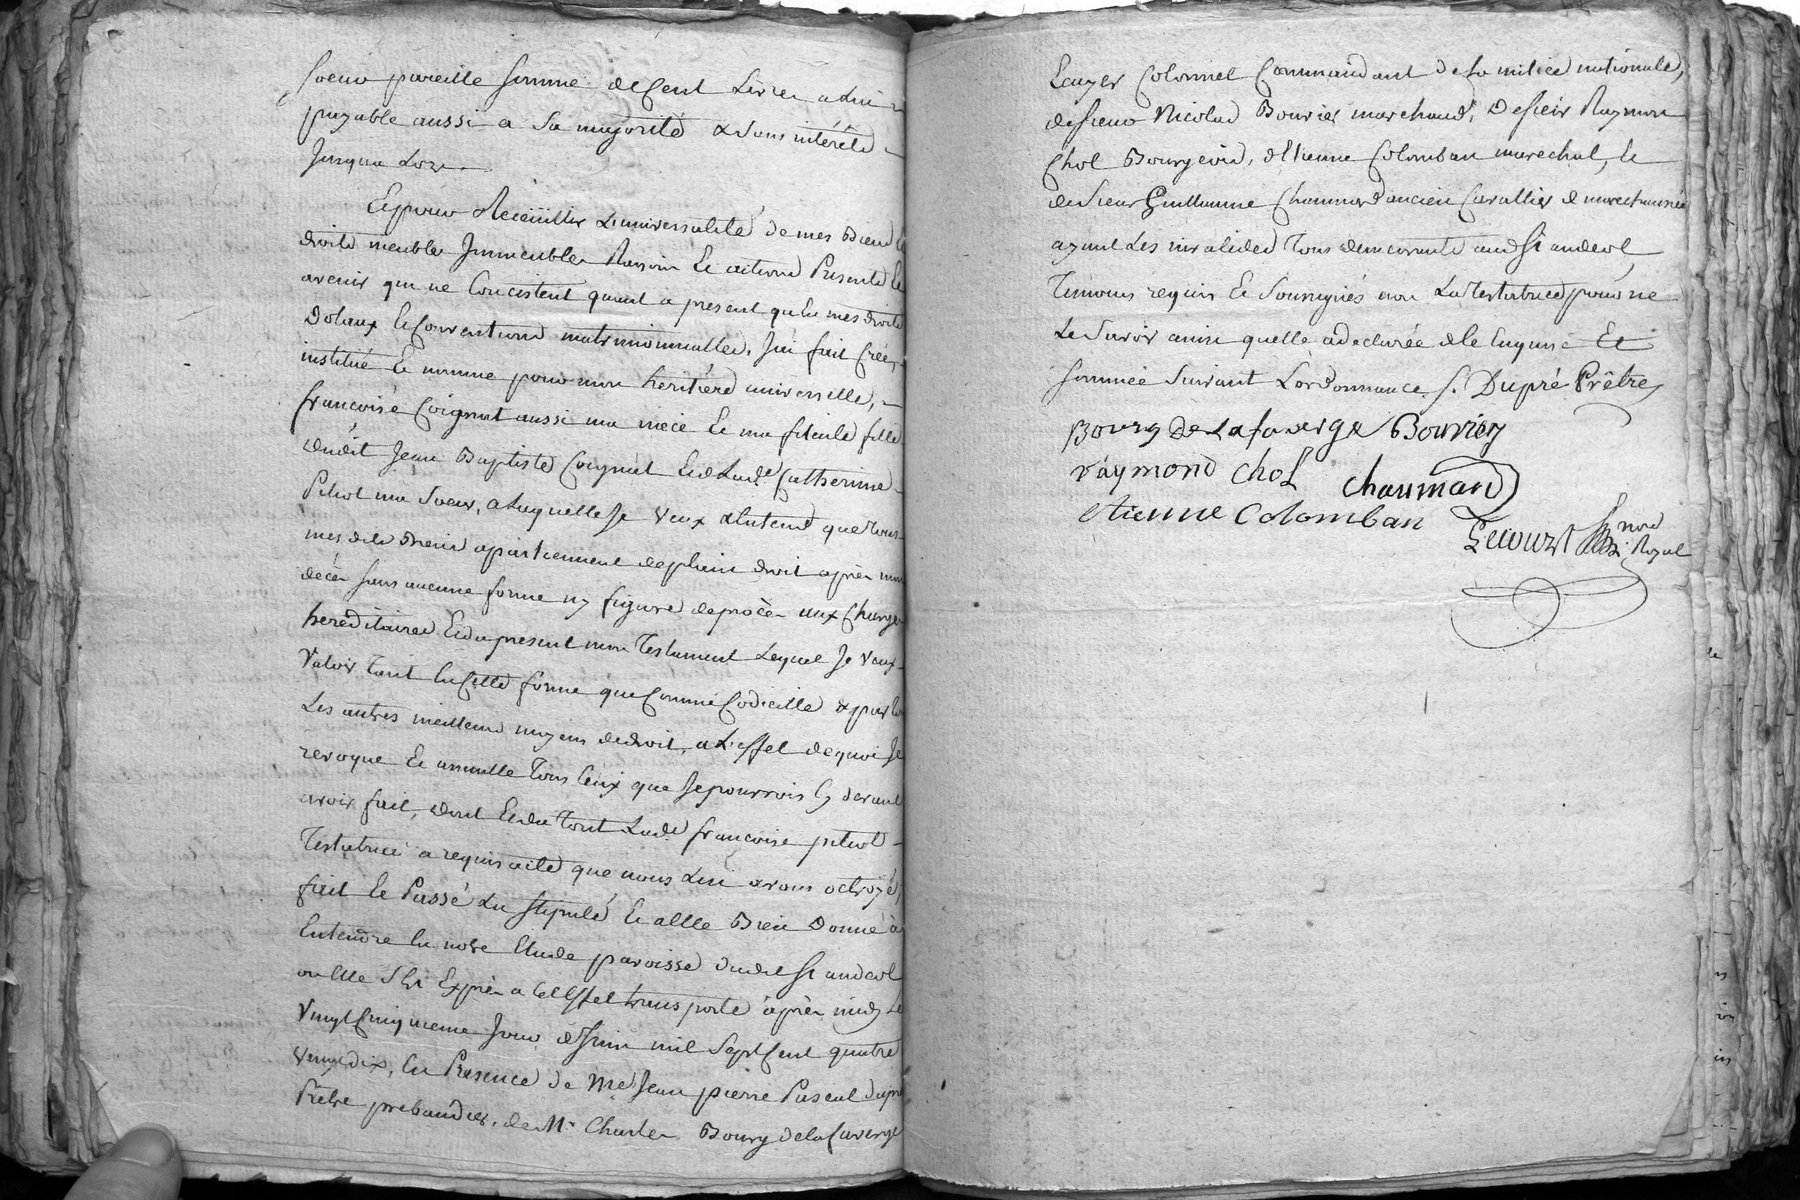 soeur pareille somme de cent Livres a elle
payable aussi a sa majorité & sans intérêts
jusqua Lors.
Et pour Receüillir L'universalité de mes Biens
droits meubles Immeubles Raisons Et actions Presents Et
avenir qui ne Concistent quant a present qu'en mes droits
Dotaux Et Conventions matrimonialles, J'ai fait Créé,
institué Et nomme pour mon heritiére universelle,
francoise Coignat aussi ma niéce Et ma filieule fille
dudit Jean Baptiste Coignat Et de Lade Catherine
Pitiot ma soeur, a Laquelle Je veux & Entend que tous
mes dits Biens apartiennent de plein droit après mon
décès sans aucune forme ny figure de procès aux Charges
hereditaires Et du present mon Testament Lequel Je veux
valoir tant En Cette forme que Comme Codicille & par tous
Les autres meilleurs moyens de droit, a L'effet de quoi Je
revoque Et annulle Tous Ceux que Je pourrois Cy devant
avoir fait, dont Et du tout Lade francoise pitiot
Testatrice a requis acte que nous Lui avons octroyé,
fait Et Passé Lu stipulé Et a Elle Bien Donné à
Entendre En notre Etude paroisse dudit St andeol
ou Elle s'est Exprès a Cet Effet transporté après midy Le
vingt Cinquieme Jour de Juin mil Sept Cent quatre
vingt dix, En Presence de Me Jean pierre Pascal dupré
Prêtre prebandier, de Mr Charles Bourg de la faverge
Ecuyer Colonnel Commandant de la milice nationale,
de sieur Nicolas Bouvier marchand, de sieur Raymon
Chol Bourgeois, d'Etienne Colomban marechal, Et
de sieur Guillaume Chaumard ancien Cavallier de marechaussée
ayant Les invalides Tous demeurants audit St andeol,
Temoins requis Et Soussignés non La Testatrice pour ne
Le Savoir ainsi quelle a declarée de Ce Enquise Et
sommée Suivant Lordonnance. J. Dupré Prêtre
Bourg De Lafaverge Bouvier
raymond chol chaumard
etienne colomban
Lecourt nore Royal